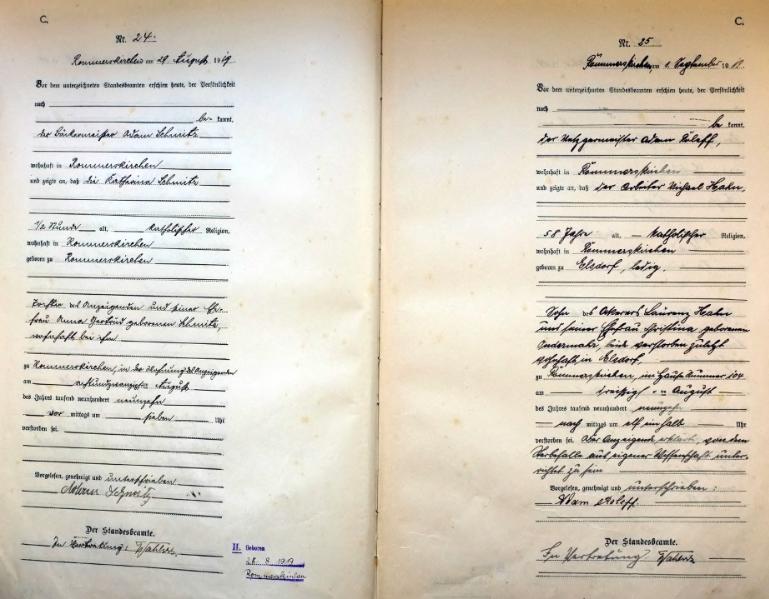 C.
Nr. 24.
Rommerskirchen am 29 August 1919.
Vor dem unterzeichneten Standesbeamten erschien heute, der Persönlichkeit
nach
be kannt,
der Bäckermeister Adam Schmitz
wohnhaft in Rommerskirchen
und zeigte an, daß die Katharina Schmitz
1/2 Stunde alt, katholischer Religion,
wohnhaft in Rommerskirchen
geboren zu Rommerskirchen
Tochter des Anzeigenden und seiner Ehe-
frau Anna Gertrud geborenen Schmitz,
wohnhaft bei ihm
zu Rommerskirchen, in der Wohnung des Anzeigenden
am achtundzwanzigsten August
des Jahres tausend neunhundert neunzehn
vor mittags um sieben Uhr
verstorben sei.
Vorgelesen, genehmigt und unterschrieben
Adam Schmitz
Der Standesbeamte.
In Vertretung:
II. Geboren
28. 8. 1919
Rommerskirchen
C.
Nr. 25
Rommerskirchen, am 1. September 1919.
Vor dem unterzeichneten Standesbeamten erschien heute, der Persönlichkeit
nach
be kannt,
der Metzgermeister Adam Roleff,
wohnhaft in Rommerskirchen
und zeigte an, daß der Arbeiter Michael Hahn,
58 Jahre alt, katholischer Religion,
wohnhaft in Rommerskirchen
geboren zu Elsdorf, ledig.
Sohn des Ackerers Laurenz Hahn
und seiner Ehefrau Christina geborenen
beide verstorben zuletzt
wohnhaft in Elsdorf.
zu Rommerskirchen, im Hause Nummer 104
am dreißigsten August
des Jahres tausend neunhundert neunzehn
nach mittags um elf einhalb Uhr
verstorben sei. Der Anzeigende erklärt, von dem
Sterbefalle aus eigener Wissenschaft unter-
richtet zu sein
Vorgelesen, genehmigt und unterschrieben:
Adam Roleff
Der Standesbeamte.
In Vertretung